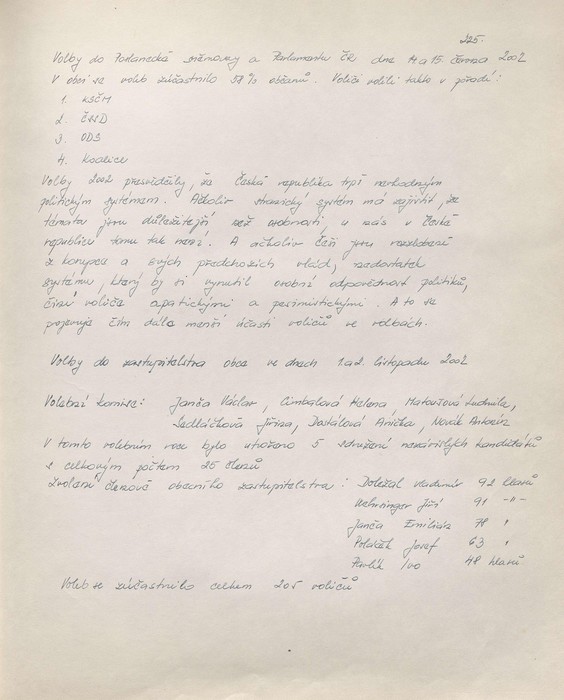 225.
Volby do Poslanecké sněmovny a Parlamentu ČR dne 14 a 15. června 2002
V obci se voleb zúčastnilo 57% občanů. Voliči volili takto v pořadí:
1. KSČM
2. ČSSD
3. ODS
4. Koalice
Volby 2002 přesvědčily, že Česká republika trpí nevhodným
politickým systémem. Ačkoliv stranický systém má zajistit, že
témata jsou důležitější než osobnosti, u nás v České
republice tomu tak není. A ačkoliv Češi jsou
z korupce a svých předchozích vlád, nedostatek
systému, který by si vynutil osobní odpovědnost politiků,
činí voliče apatickými a pesimistickými. A to se
projevuje čím dál menší účastí voličů ve volbách.
Volby do zastupitelstva obce ve dnech 1. a 2. listopadu 2002
Volební komise: Janča Václav, Cimbalová Helena, Matoušová Ludmila,
Sedláčková Jiřina, Dostálová Anička, Novák Antonín
V tomto volebním roce bylo utvořeno 5 sdružení nezávislých kandidátů
s celkovým počtem 25 členů
Zvolení členové obecního zastupitelstva: Doležal Vladimír 92 hlasů
Jiří 91 -"-
Janča Emilián 78 "
Poláček Josef 63 "
Pavlík Ivo 48 hlasů
Voleb se zúčastnilo celkem 205 voličů